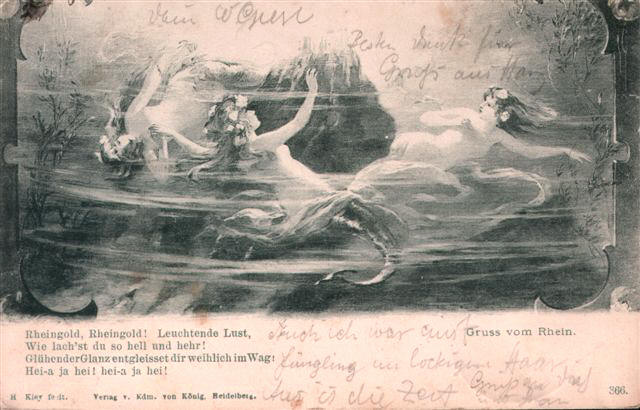 Dein W Gperl
Besten Dank für
Gruß aus Harz
Rheingold, Rheingold! Leuchtende Lust,
Wie lach'st du so hell und hehr!
Glühender Glanz entgleisset dir weihlich im Wag!
Hei-a ja hei! hei-a ja hei!
Gruss vom Rhein.
Auch ich war einst
Jüngling im lockigem Haar
Aus is die Zeit
H Kley fedt.
Verlag v. Edm. von König, Heidelberg.
366.